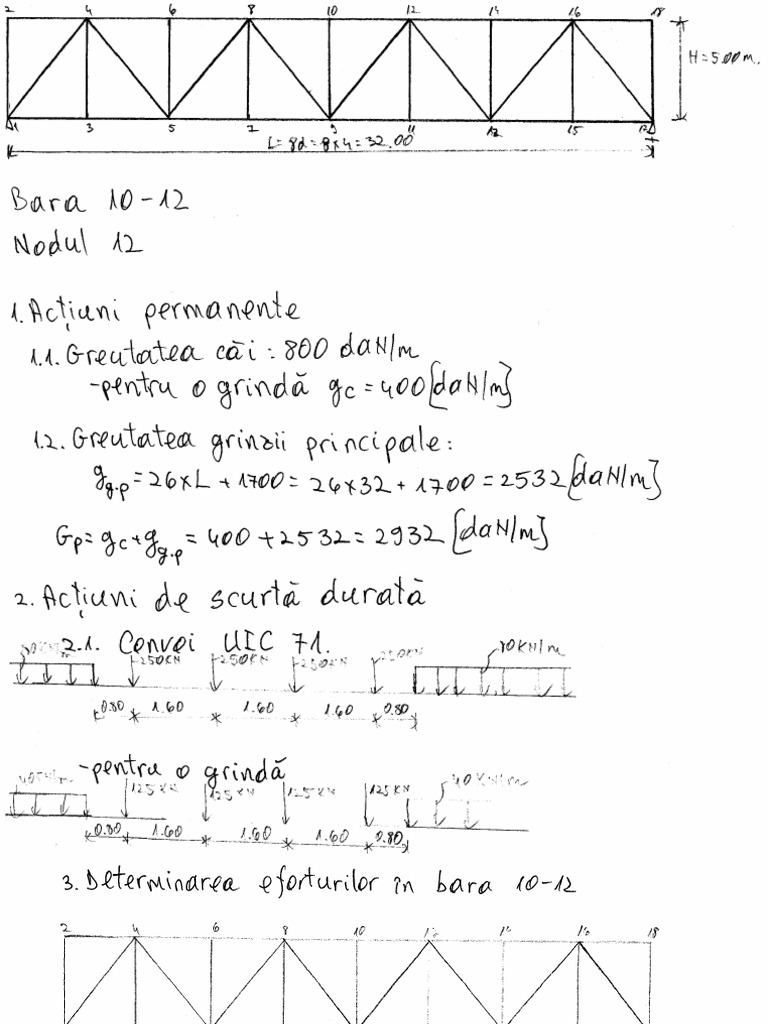 2 4 6 8 10 12 14 16 18
H = 5.00 m.
1 3 5 7 9 11 13 15 17
L = 8d = 8 x 4 = 32.00
Bara 10-12
Nodul 12
1. Acțiuni permanente
1.1. Greutatea căi : 800 daN/m
-pentru o grindă gc = 400 [daN/m]
1.2. Greutatea grinzii principale:
gg.p = 26 x L + 1700 = 26 x 32 + 1700 = 2532 [daN/m]
Gp = gc + gg.p = 400 + 2532 = 2932 [daN/m]
2. Acțiuni de scurtă durată
2.1. Convoi UIC 71.
80KN/m 250KN 250KN 250KN 250KN 80KN/m
0.80 1.60 1.60 1.60 0.80
-pentru o grindă
40KN/m 125KN 125KN 125KN 125KN 40KN/m
0.80 1.60 1.60 1.60 0.80
3. Determinarea eforturilor în bara 10-12
2 4 6 8 10 12 14 16 18